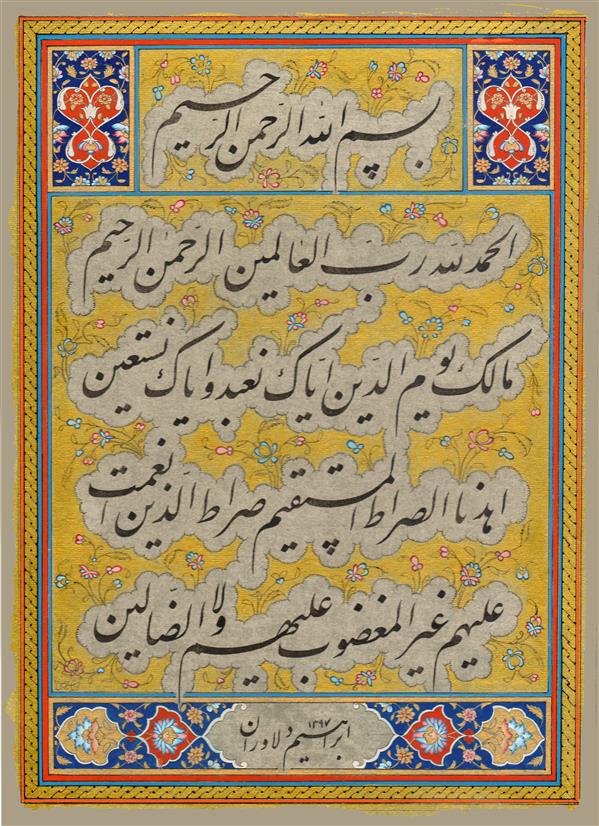 بسم الله الرحمن الرحیم
الحمد لله رب العالمین الرحمن الرحیم
مالک یوم الدین ایاک نعبد و ایاک نستعین
اهدنا الصراط المستقیم صراط الذین انعمت
علیهم غیر المغضوب علیهم ولا الضالین
ابراهیم دلاوران ۱۳۹۷